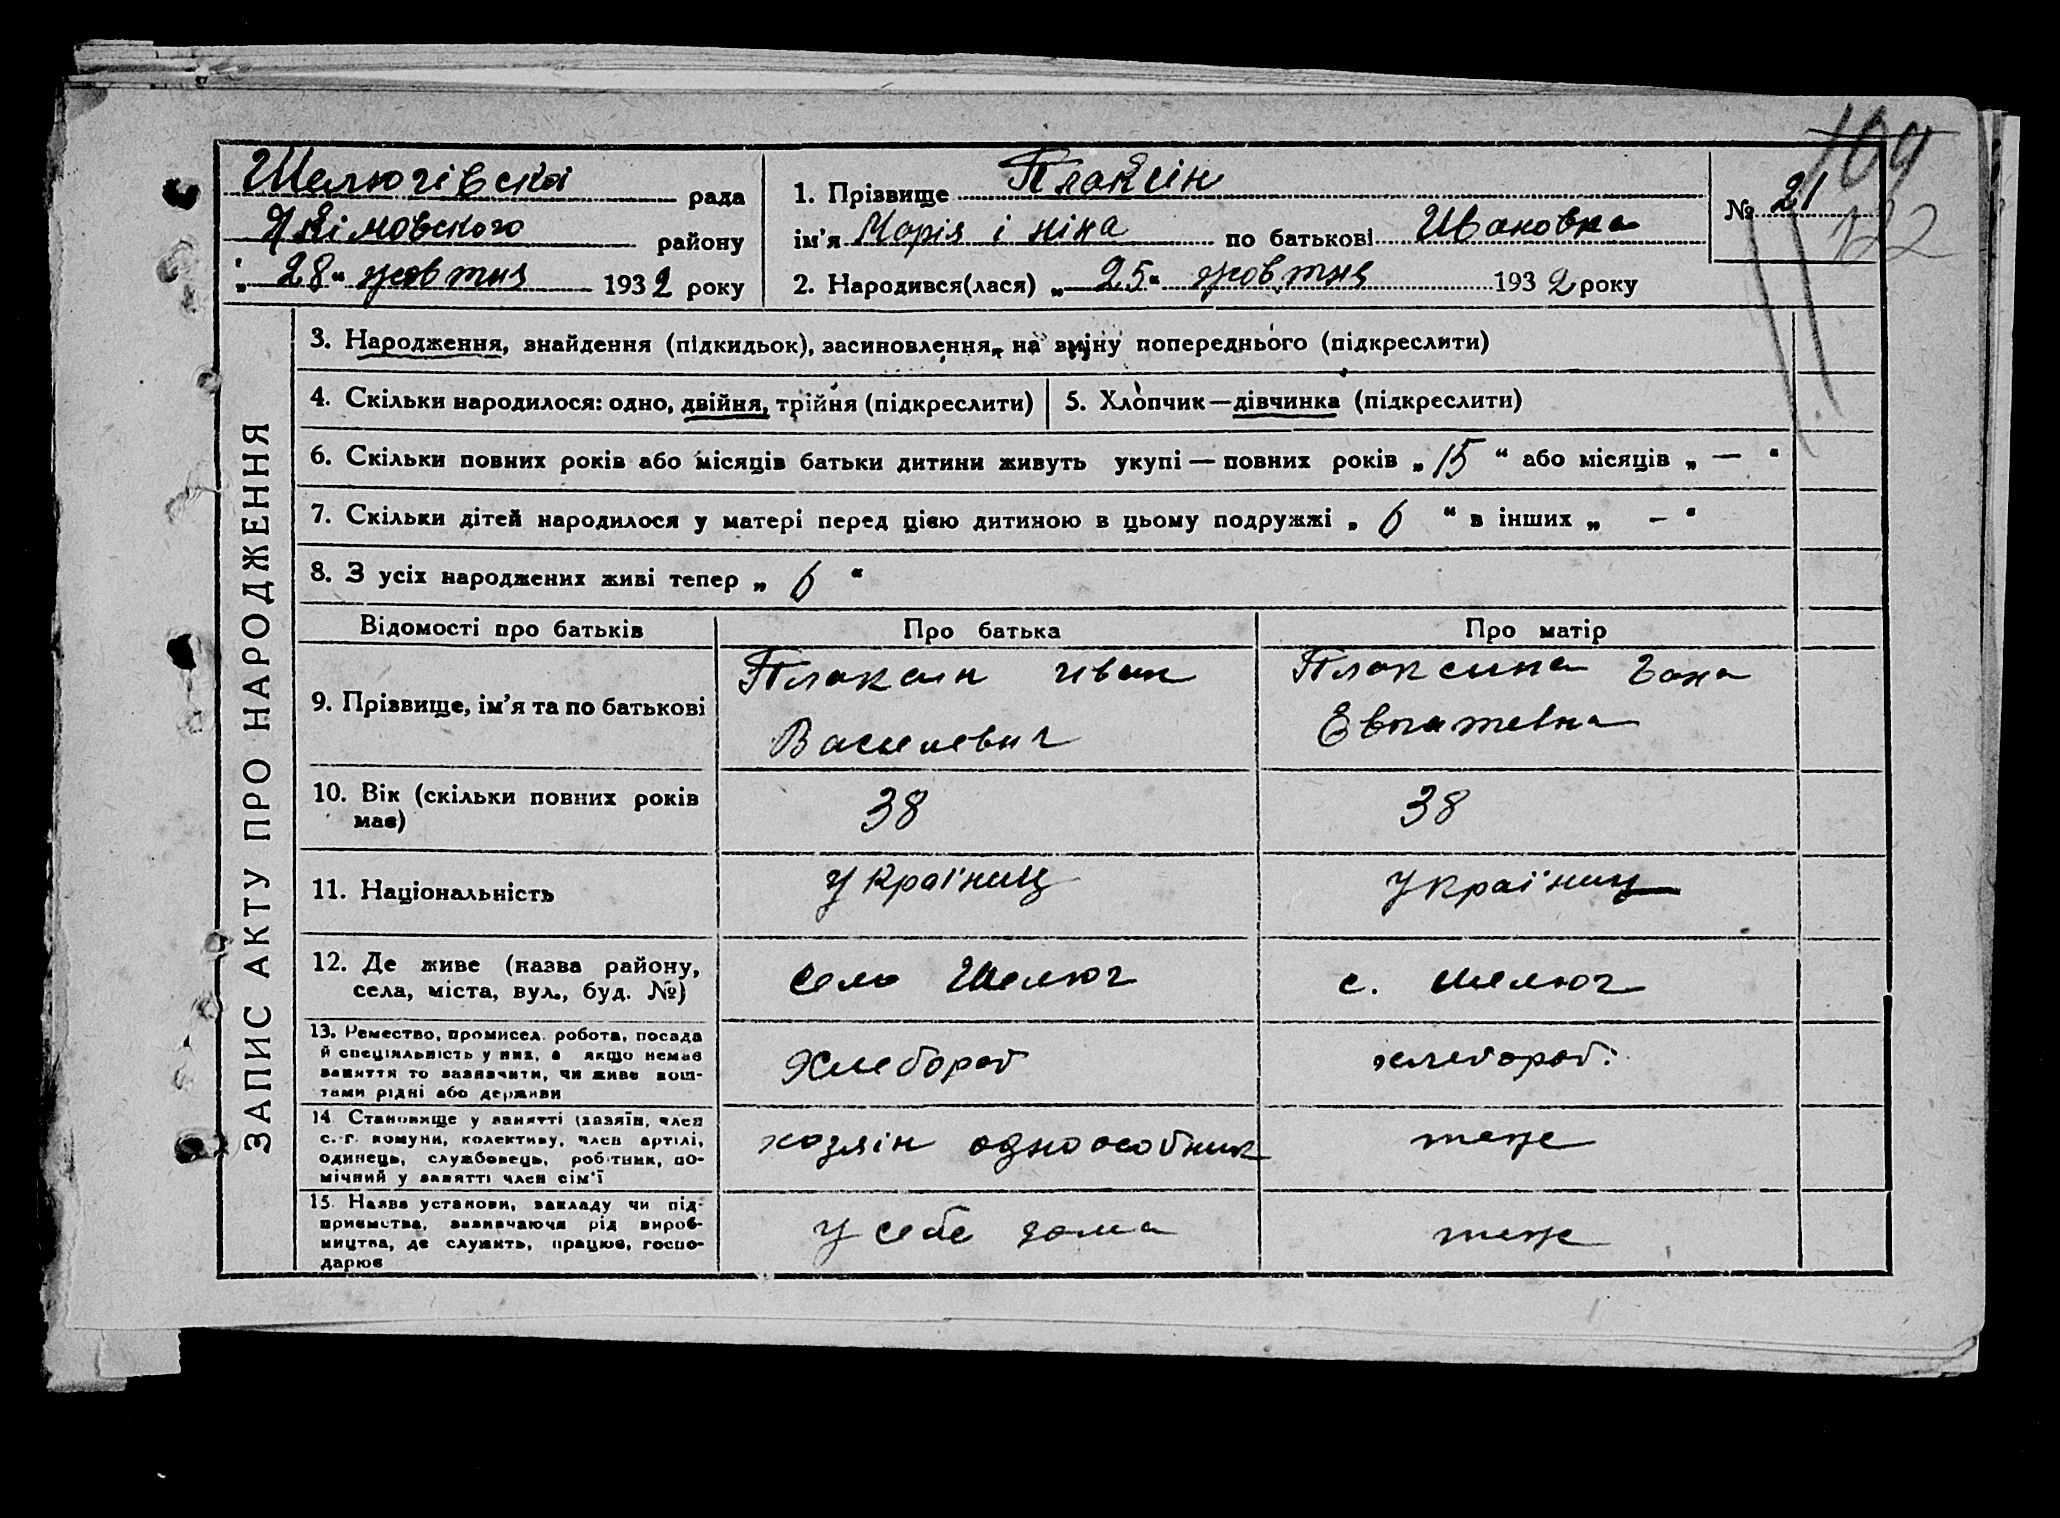 104
122
Шелюгівска рада
Якімовского району
„ 28 “ жовтня 1932 року
1. Прізвище Плаксін
ім’я Марія і ніна по батькові Ивановна
2. Народився(лася) „ 25 “ жовтня 1932 року
№ 21
ЗАПИС АКТУ ПРО НАРОДЖЕННЯ
3. Народження, знайдення (підкидьок), засиновлення, на зміну попереднього (підкреслити)
4. Скільки народилося: одно, двійня, трійня (підкреслити)
5. Хлопчик—дівчинка (підкреслити)
6. Скільки повних років або місяців батьки дитини живуть укупі — повних років „ 15 “ або місяців „ — “
7. Скільки дітей народилося у матері перед цією дитиною в цьому подружжі „ 6 “ в інших „ — “
8. З усіх народжених живі тепер „ 6 “
Відомості про батьків
Про батька
Про матір
9. Прізвище, ім’я та по батькові
Плаксин иван
Василевич
Плаксина Гана
10. Вік (скільки повних років
має)
38
38
11. Національність
україниц
україниц
12. Де живе (назва району,
села, міста, вул., буд. №)
село Шелюг
с. Шелюг
13. Ремество, промисел, робота, посада
й спеціяльність у них, а якщо немає
заняття то зазначити, чи живе кош-
тами рідні або держави
Хлебороб
хлебороб.
14. Становище у занятті (хазяїн, член
с.-г. комуни, колективу, член артілі,
одинець, службовець, робітник, по-
мічний у занятті член сім’ї
хозяін одноособник
теже
15. Назва установи, закладу чи під-
приємства, зазначаючи рід вироб-
ництва, де служить, працює, госпо-
дарює
у себе дома
теже